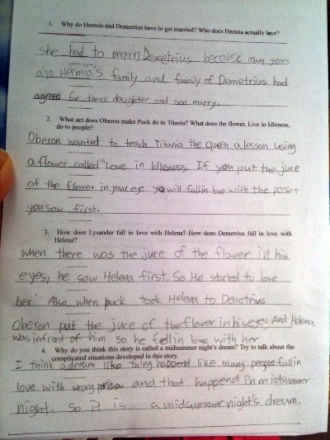 1. Why do Hermia and Demetrius have to get married? Who does Hermia actually love?
She had to marry Demetrius because many years
ago Hermia's family and family of Demetrius had
agreed for there daughter and son marry.
2. What act does Oberon make Puck do to Titania? What does the flower, Live in Idleness,
do to people?
Oberon wanted to teach Titania the queen a lesson using
a flower called "Love in Idleness. If you put the juce
of the flower in your eye you will fall in love with the person
you saw first.
3. How does Lysander fall in love with Helena? How does Demetrius fall in love with
Helena?
when there was the juce of the flower in his
eyes, he saw Helena first. So He started to love
her. Also when puck took Helena to Demetrius
Oberon put the juce of the flower in his eye. And Helena
was infront of him so he fell in love with her
4. Why do you think this story is called a midsummer night's dream? Try to talk about the
complicated situations developed in this story.
I think a dream like thing happend like many people fall in
love with wrong person and that happend in midsummer
Night. So it is a midsummer night's dream.